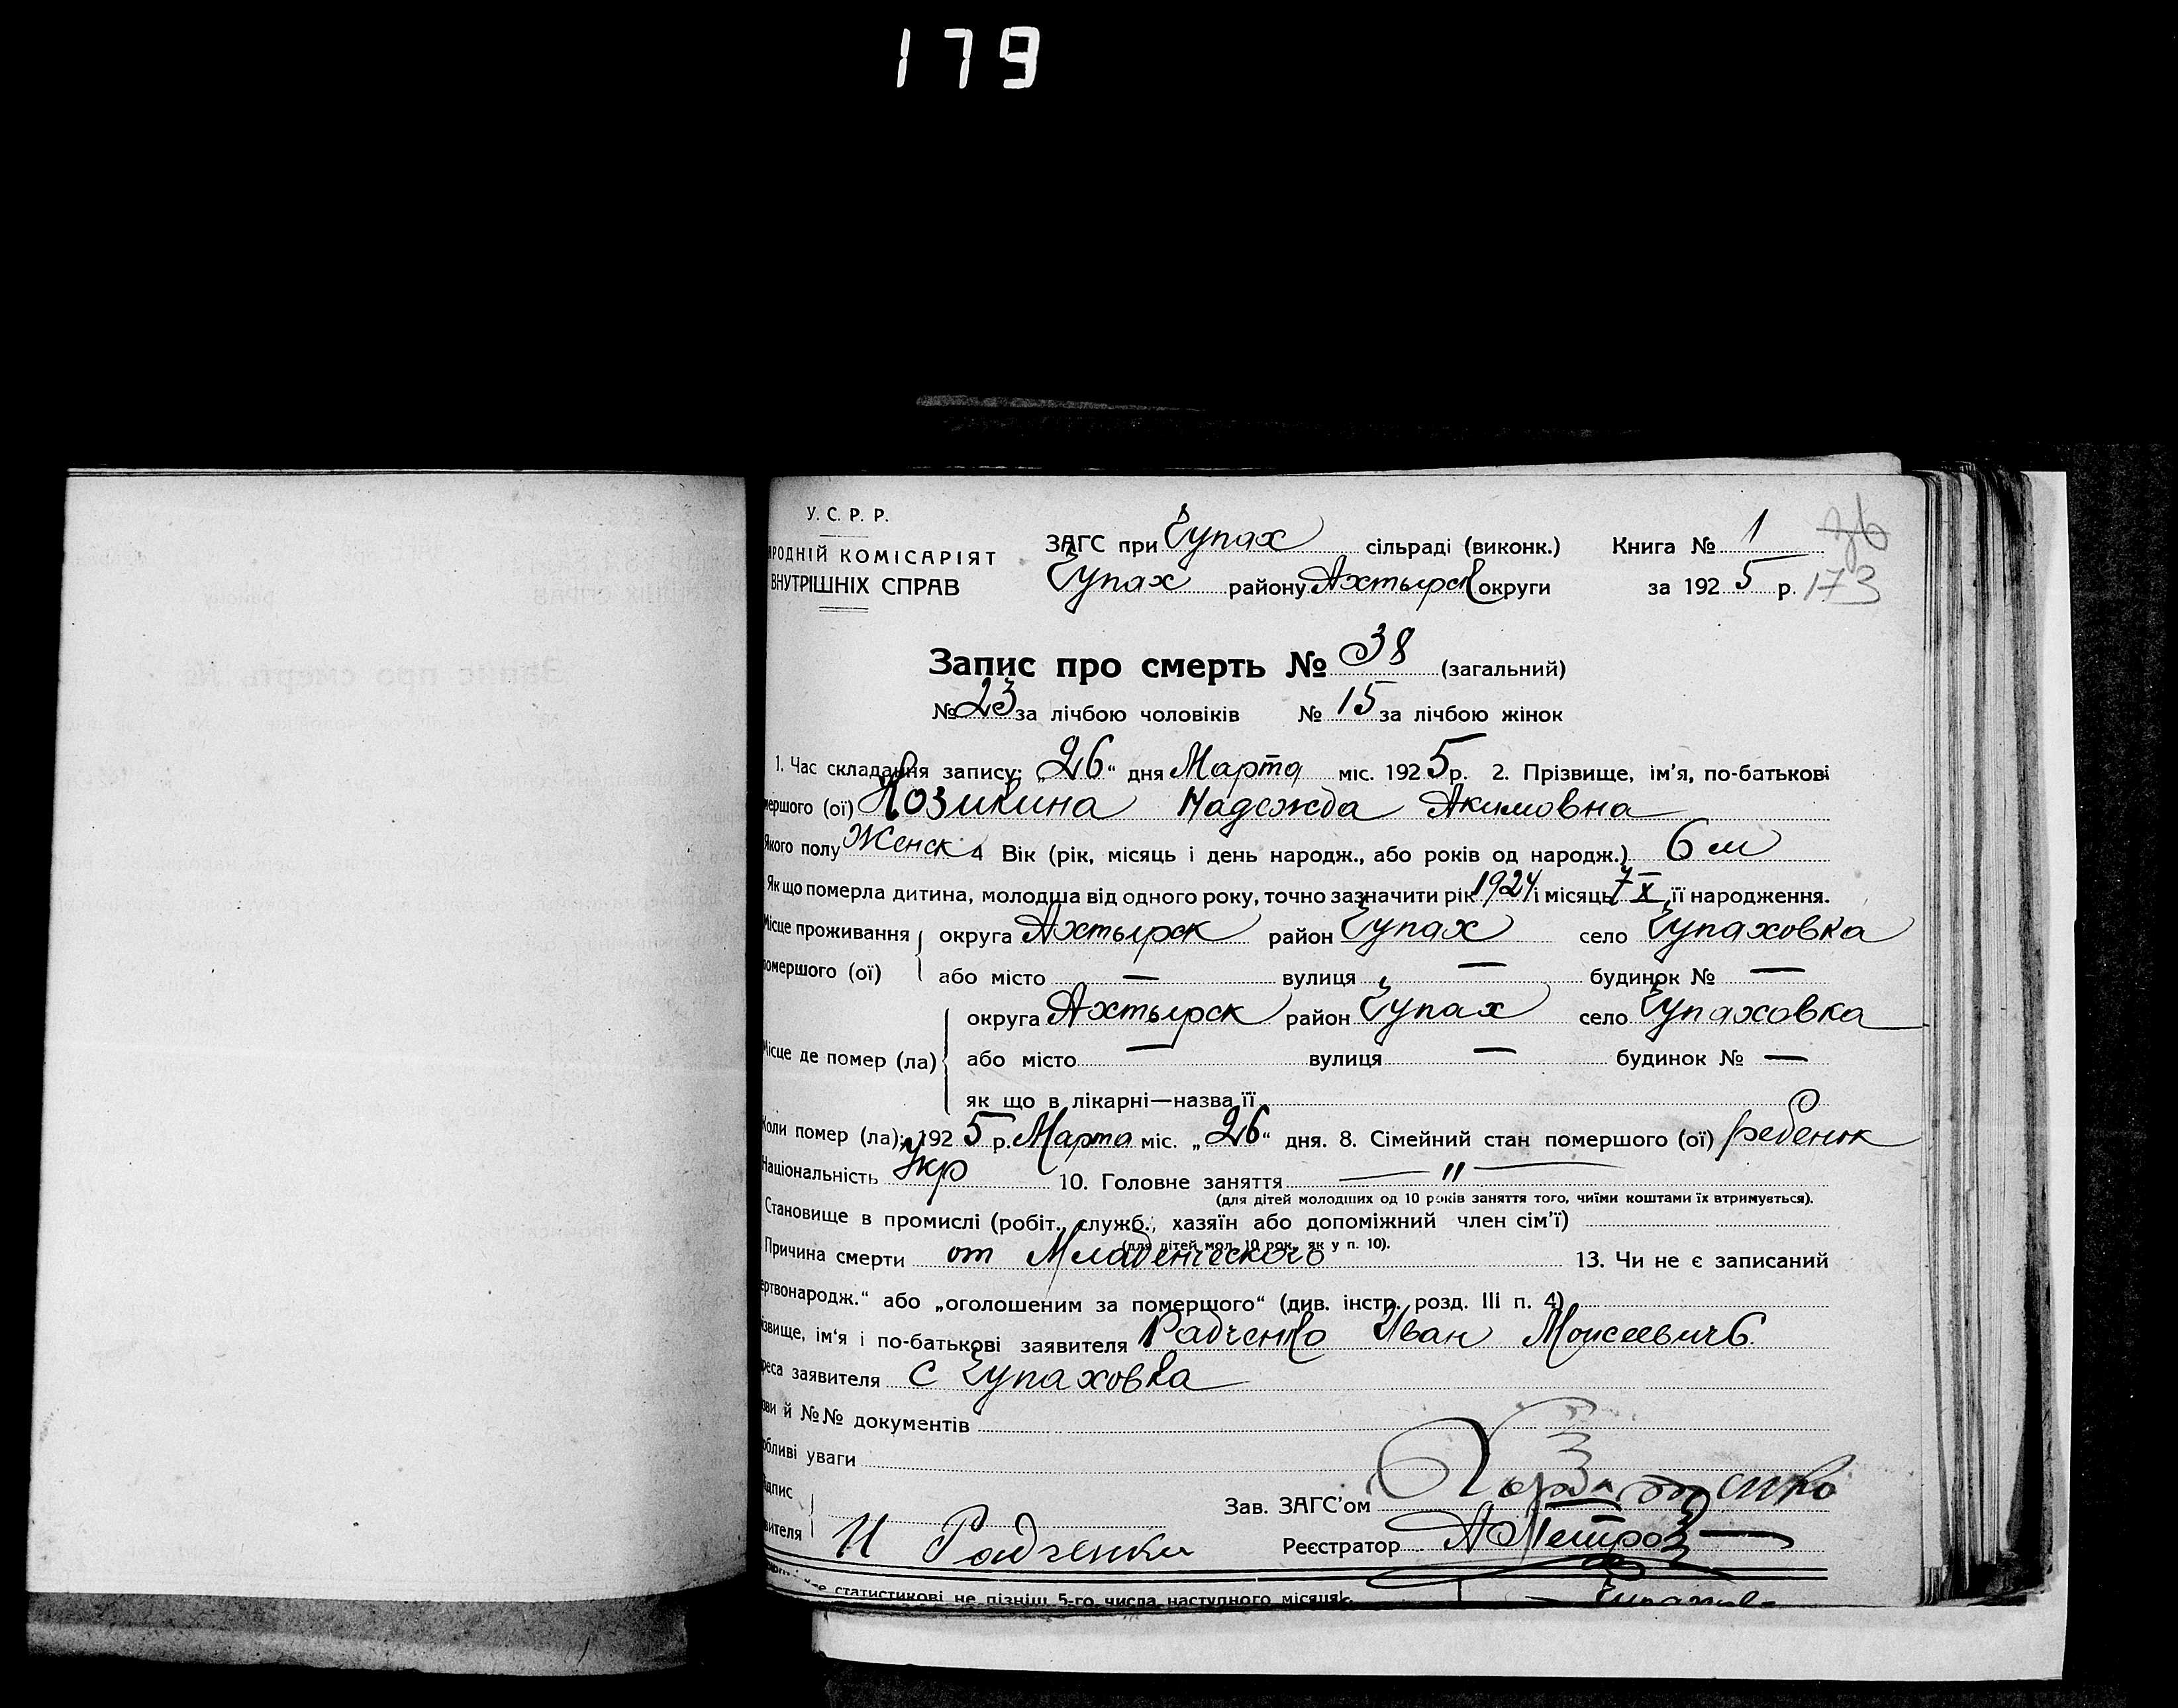 179
У. С. Р. Р.
РОДНІЙ КОМІСАРІЯТ
ВНУТРІШНІХ СПРАВ
ЗАГС при Чупах сільраді (виконк.) Книга № 1
36
Чупах району Ахтырск округи за 192 5 р. 173
Запис про смерть № 38 (загальний)
№ 23 за лічбою чоловіків № 15 за лічбою жінок
1. Час складання запису: „26“ дня Марта міс. 192 5 р. 2. Прізвище, ім'я, по-батькові
мершого (ої) Козикина Надежда Акимовна
Якого полу Женск 4 Вік (рік, місяць і день народж., або років од народж.) 6 м
Якщо померла дитина, молодша від одного року, точно зазначити рік 1924 і місяць 7 X її народження.
Місце проживання округа Ахтырск район Чупах село Чупаховка
помершого (ої) або місто — вулиця — будинок № —
округа Ахтырск район Чупах село Чупаховка
Місце де помер (ла) або місто — вулиця — будинок № —
як що в лікарні—назва її
Коли помер (ла): 192 5 р. Марта міс. „26“ дня. 8. Сімейний стан помершого (ої) ребенок
Національність Укр 10. Головне заняття — " —
(для дітей молодших од 10 років заняття того, чиїми коштами їх втримується).
Становище в промислі (робіт., служб., хазяїн або допоміжний член сім'ї)
(для дітей мол. 10 рок. як у п. 10).
Причина смерти от Младенческого 13. Чи не є записаний
ертвонародж.“ або „оголошеним за помершого“ (див. інстр. розд. III п. 4)
ізвище, ім'я і по-батькові заявителя Радченко Иван Моисеевич
реса заявителя с Чупаховка
зви й №№ документів
обливі уваги
ідпис
вителя И Радченки
Зав. ЗАГС'ом
Реєстратор АПетров
статистикові не пізніш 5-го числа наступного місяця